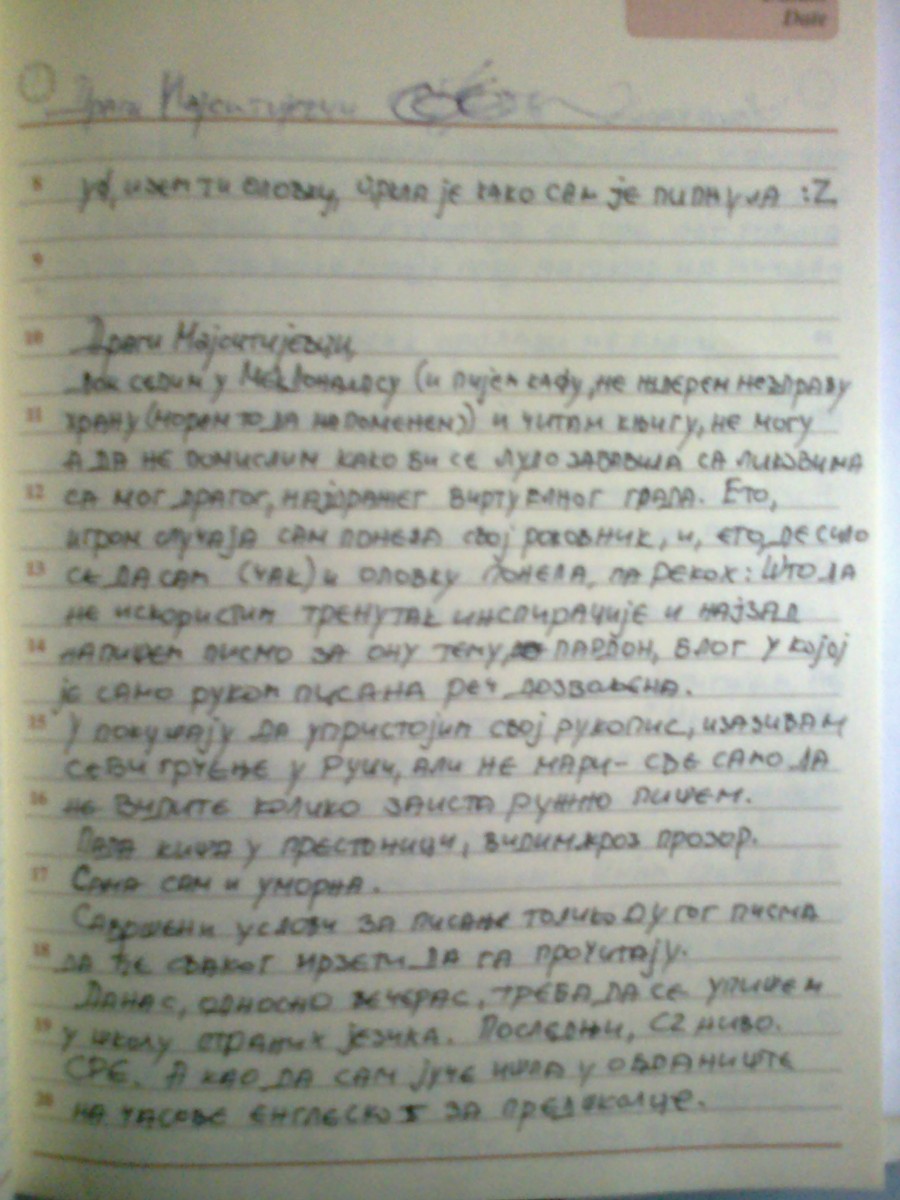 Date
Драги Мајситијевци
уф, изем ти оловку, цркла је како сам је пипнула :Z
8
9
10
Драги Мајситијевци,
док седим у МекДоналдсу (и пијем кафу, не ждерем нездраву
11
храну (морам то да напоменем)) и читам књигу, не могу
а да не помислим како би се лудо забавила са ликовима
12
са мог драгог, најдражег виртуелног града. Ето,
игром случаја сам понела свој роковник, и, ето, десило
13
се да сам (чак) и оловку понела, па рекох: Што да
не искористим тренутак инспирације и најзад
14
напишем писмо за ону тему, пардон, блог у којој
је само руком писана реч дозвољена.
15
У покушају да упристојим свој рукопис, изазивам
себи грчење у руци, али не мари - све само да
16
не видите колико заиста ружно пишем.
Пада киша у престоници, видим кроз прозор.
17
Сама сам и уморна.
Савршени услови за писање толико дугог писма
18
да ће сваког мрзети да га прочитају.
Данас, односно вечерас, треба да се упишем
19
у школу страних језика. Последњи, C2 ниво.
СРЕ. А као да сам јуче ишла у обданиште
20
на часове енглеског за предшколце.